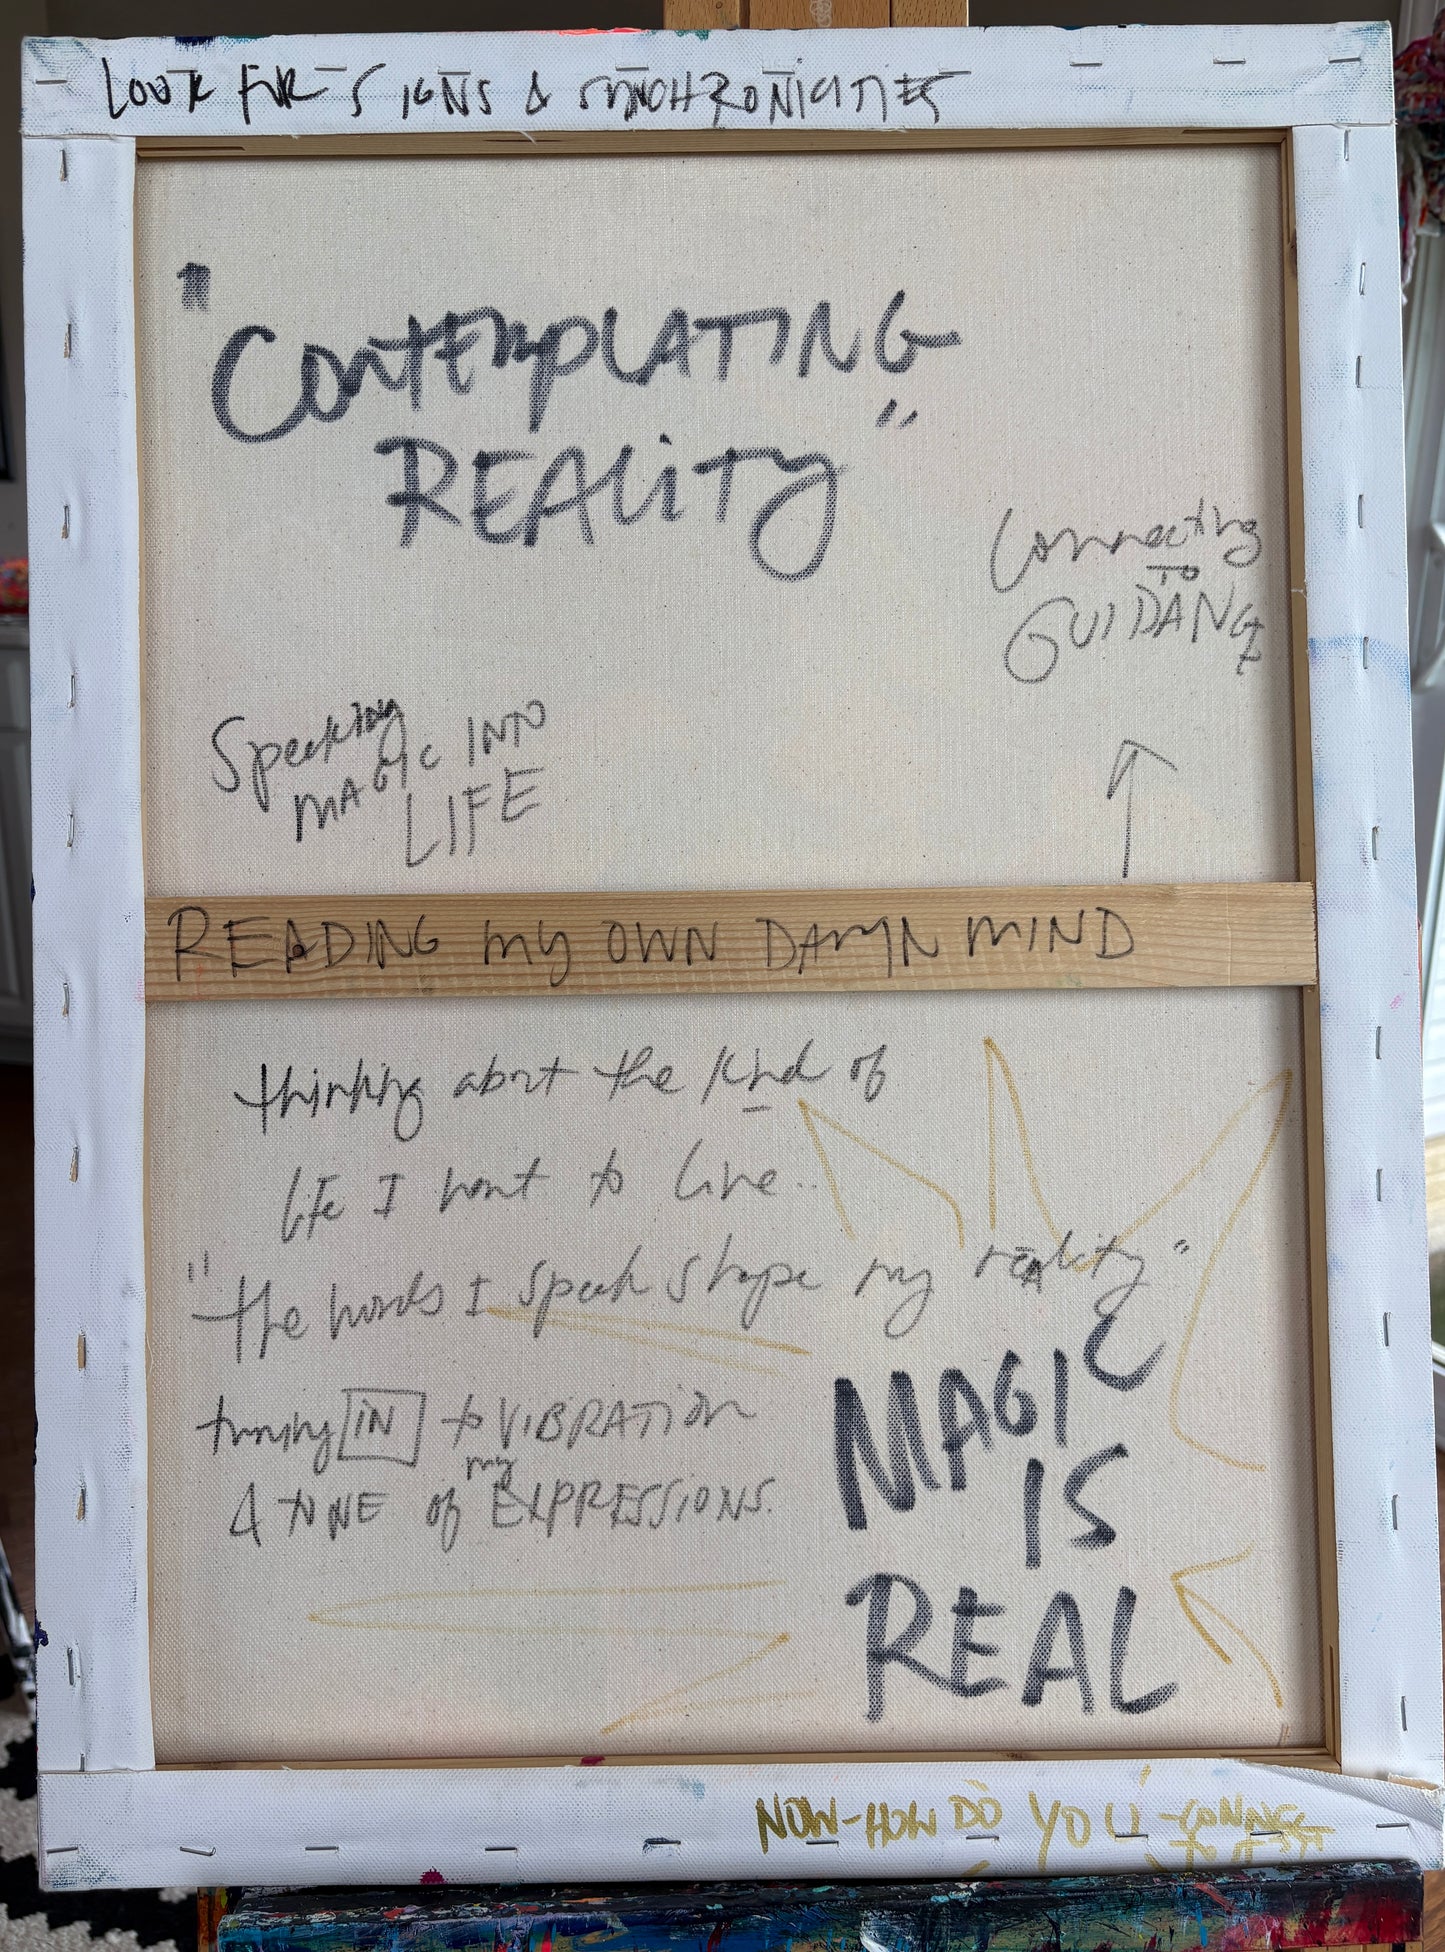 LOOK FOR SIGNS & SYNCHRONICITIES
"CONTEMPLATING
REALITY"
Connecting
TO
GUIDANCE
Speaking
MAGIC INTO
LIFE
READING MY OWN DAMN MIND
thinking about the kind of
life I want to live..
"the words I speak shape my reality"
tuning IN to VIBRATION
& TONE of my EXPRESSIONS.
MAGIC
IS
REAL
NOW-HOW DO YOU-CONNECT
TO IT